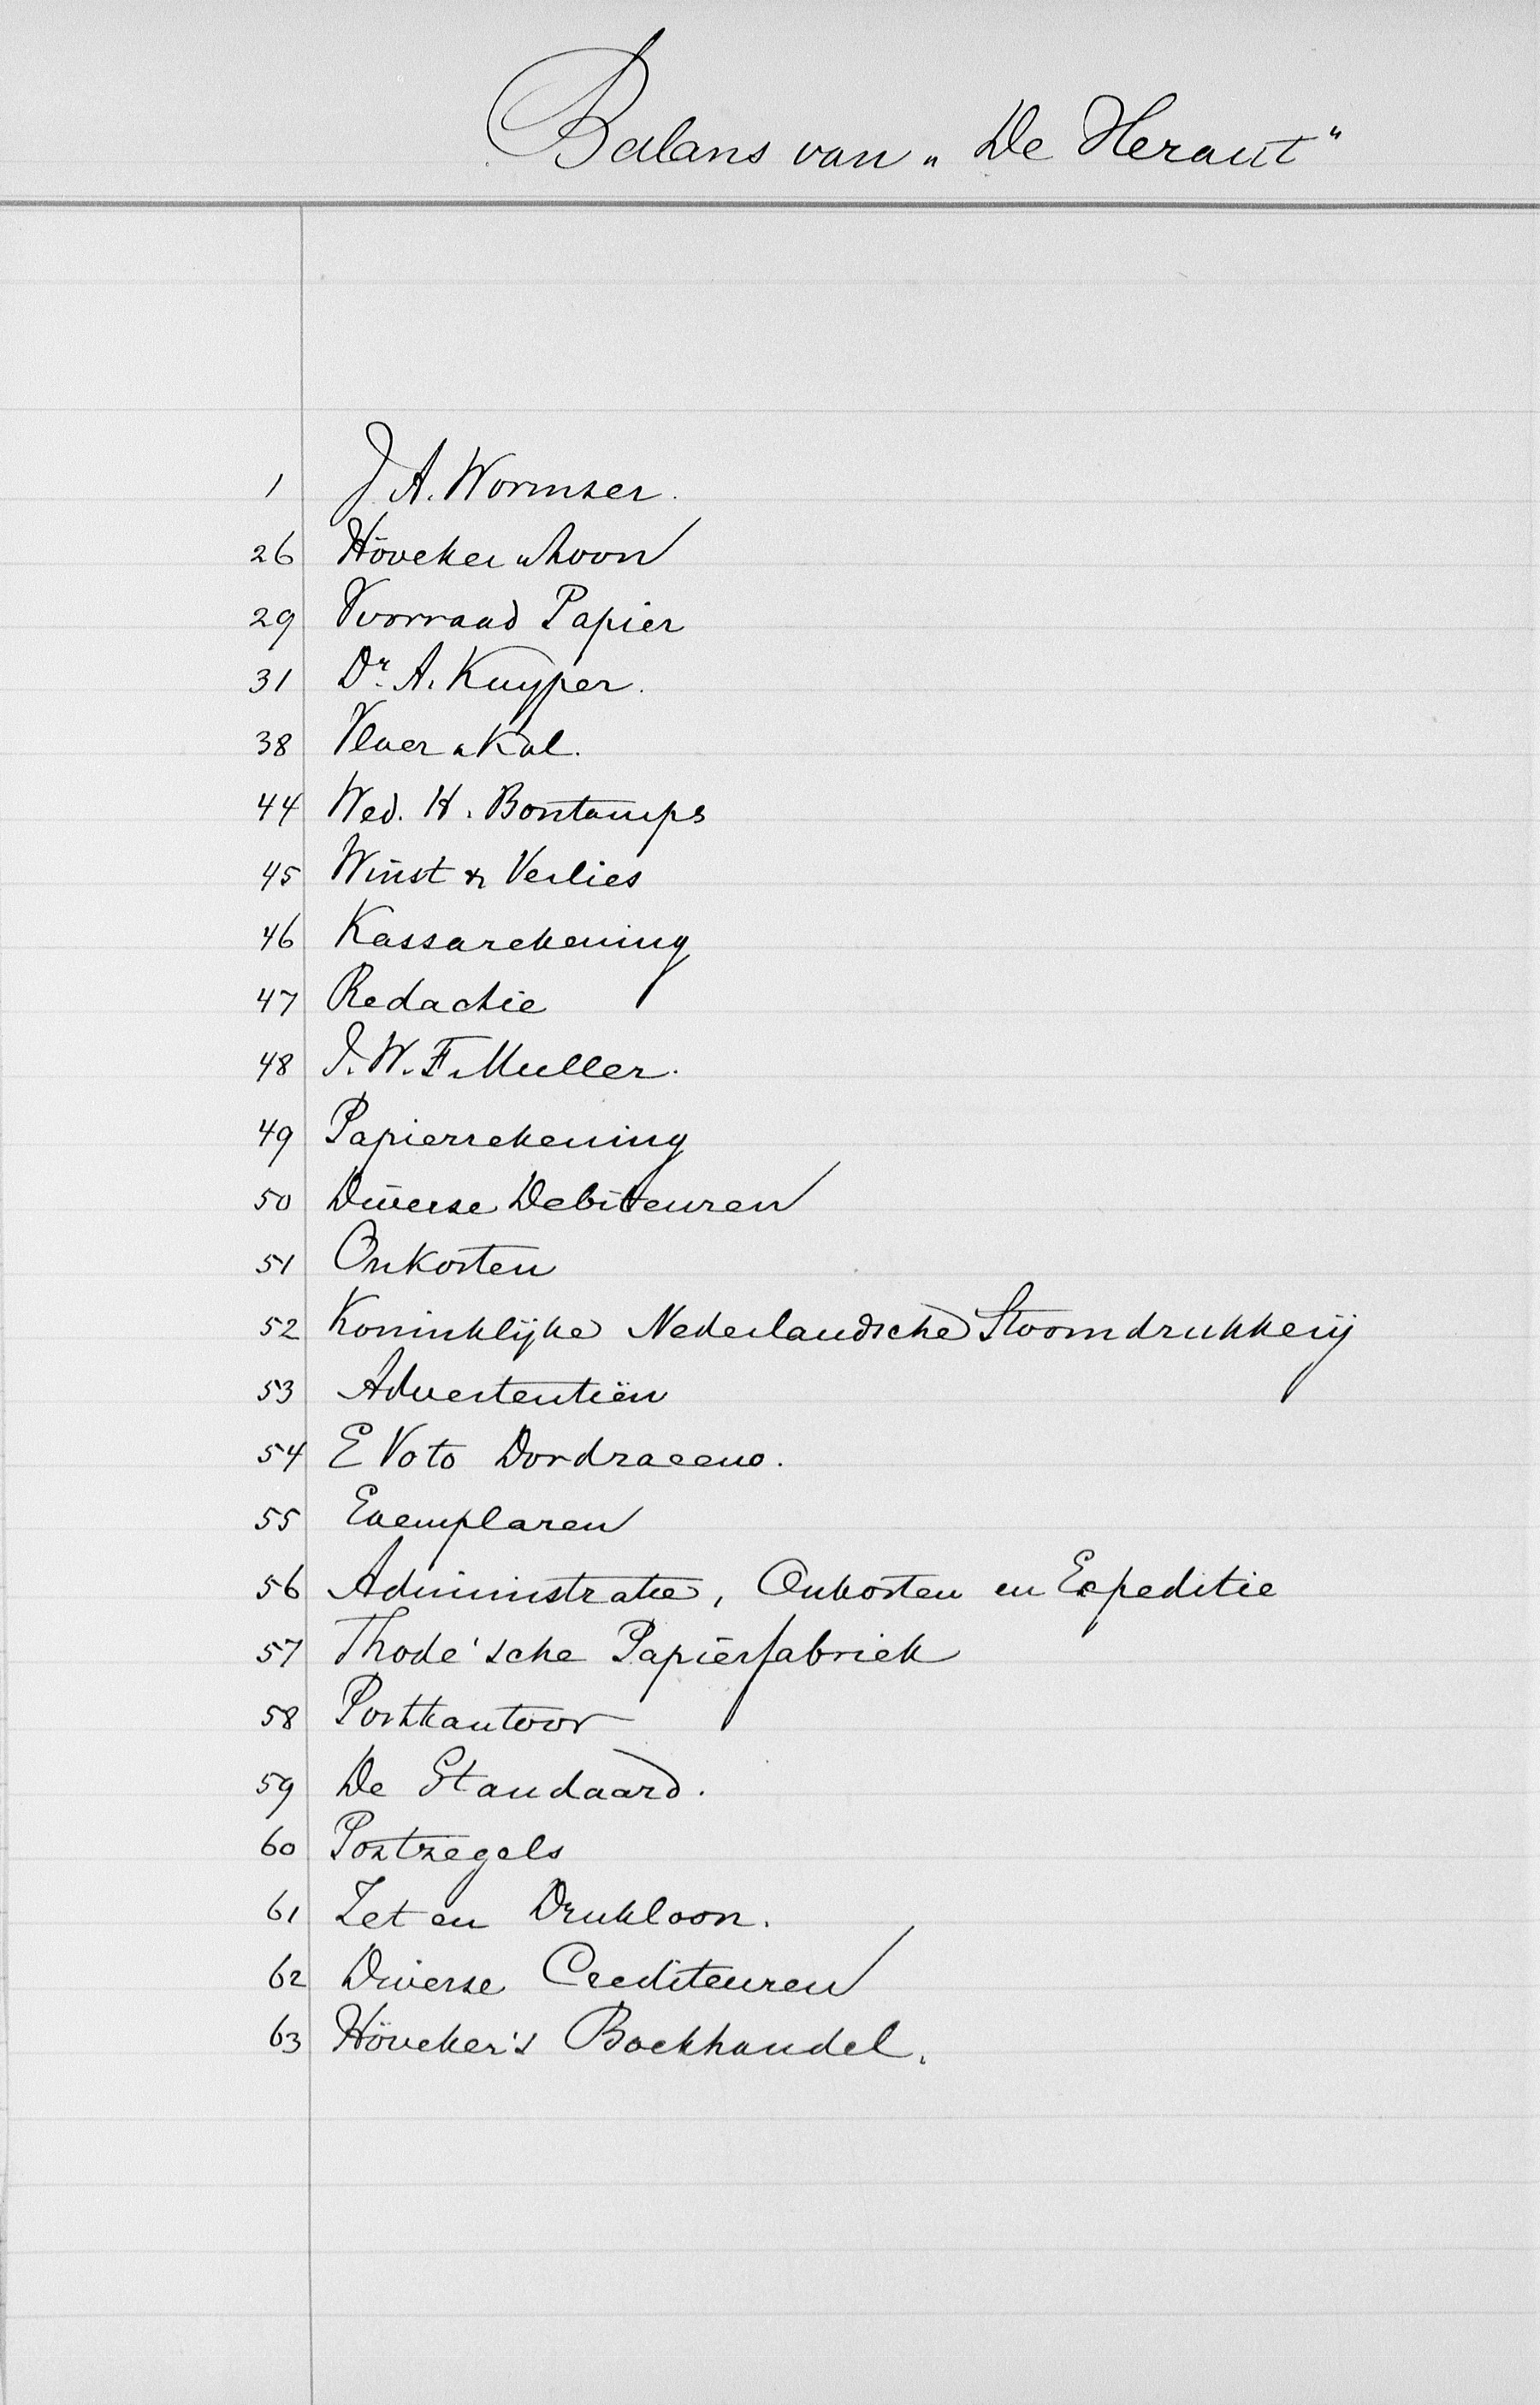 Balans van „De Heraut"
1 J. A. Wormser.
26 Höveker & Zoon
29 Voorraad Papier
31 Dr. A. Kuyper.
38 Vloer & Kol.
44 Wed. H. Bontamps
45 Winst & Verlies
46 Kassarekening
47 Redactie
48 J. W. F. Muller.
49 Papierrekening
50 Diverse Debiteuren
51 Onkosten
52 Koninklijke Nederlandsche Stoomdrukkerij
53 Advertentiën
54 E Voto Dordraceno.
55 Exemplaren
56 Administratie, Onkosten en Expeditie
57 Thode'sche Papierfabriek
58 Postkantoor
59 De Standaard.
60 Postzegels
61 Zet en Drukloon.
62 Diverse Crediteuren
63 Höveker's Boekhandel.